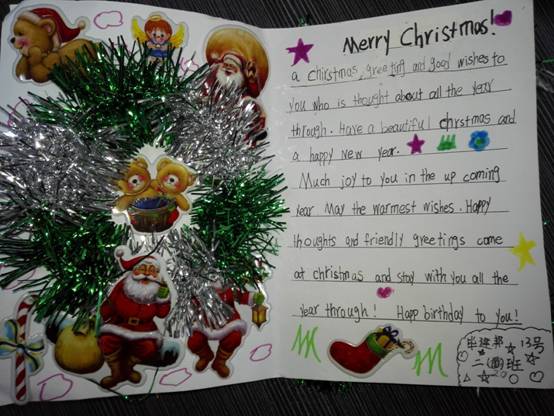 Merry Christmas!
a chirstmas, greeting and good wishes to
you who is thought about all the year
through. Have a beautiful chrstmas and
a happy new year.
Much joy to you in the up coming
year May the warmest wishes. Happy
thoughts and friendly greetings come
at christmas and stay with you all the
year through! Happ birthday to you!
13号
二(四)班